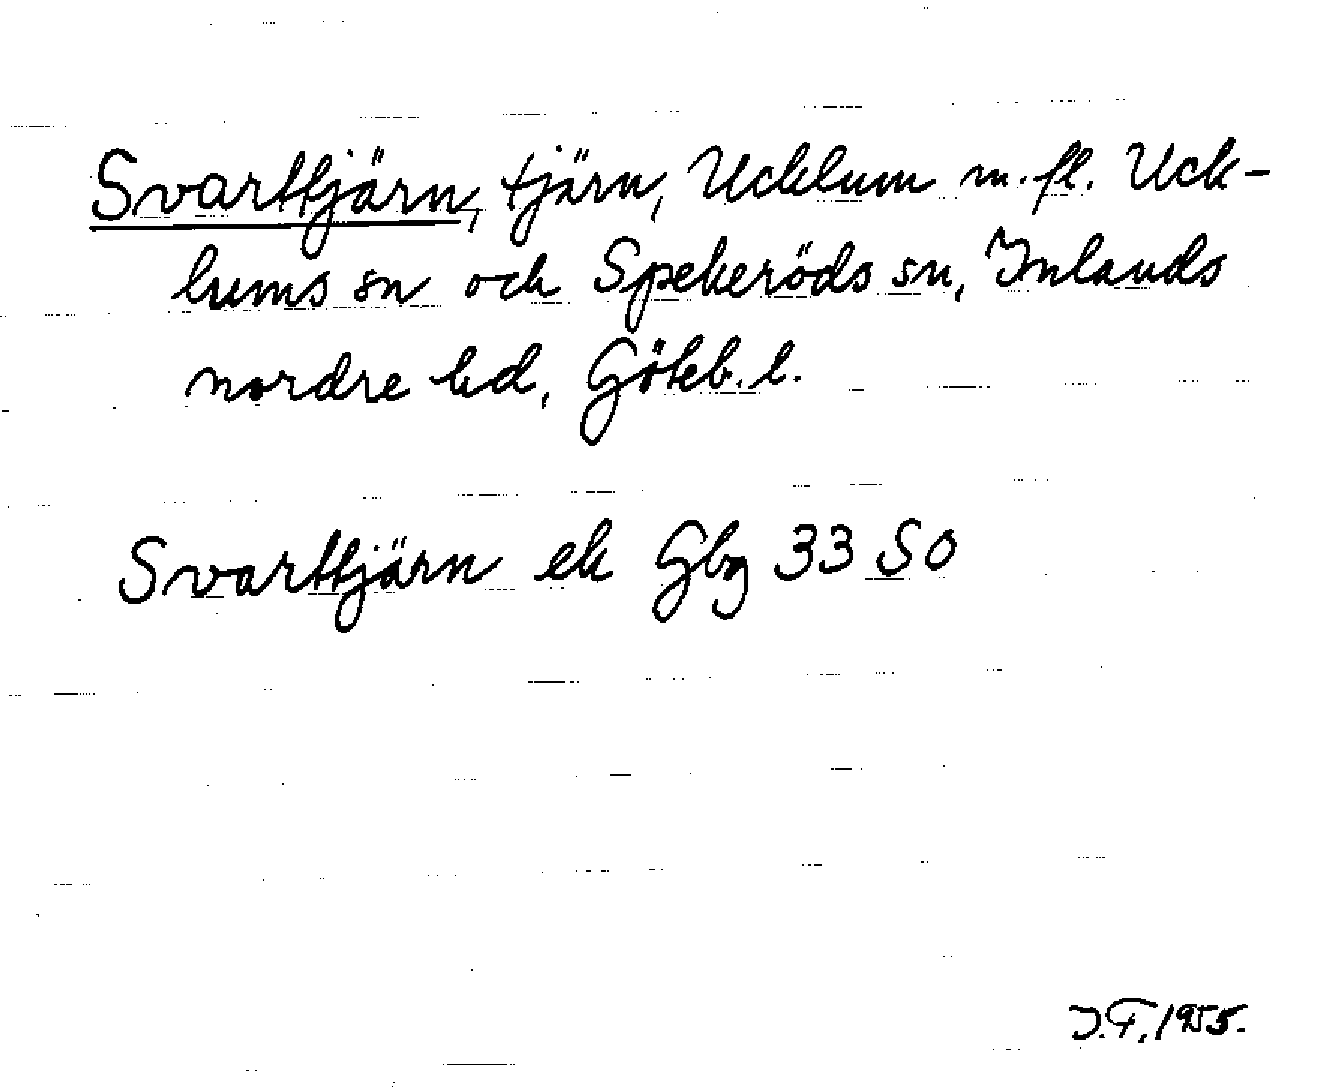 Svarttjärn, tjärn, Ucklum m.fl. Uck-
lums sn och Spekeröds sn, Inlands
nordre hd, Göteb. l.
Svarttjärn ek Gbg 33 SO
J.F. 1955.